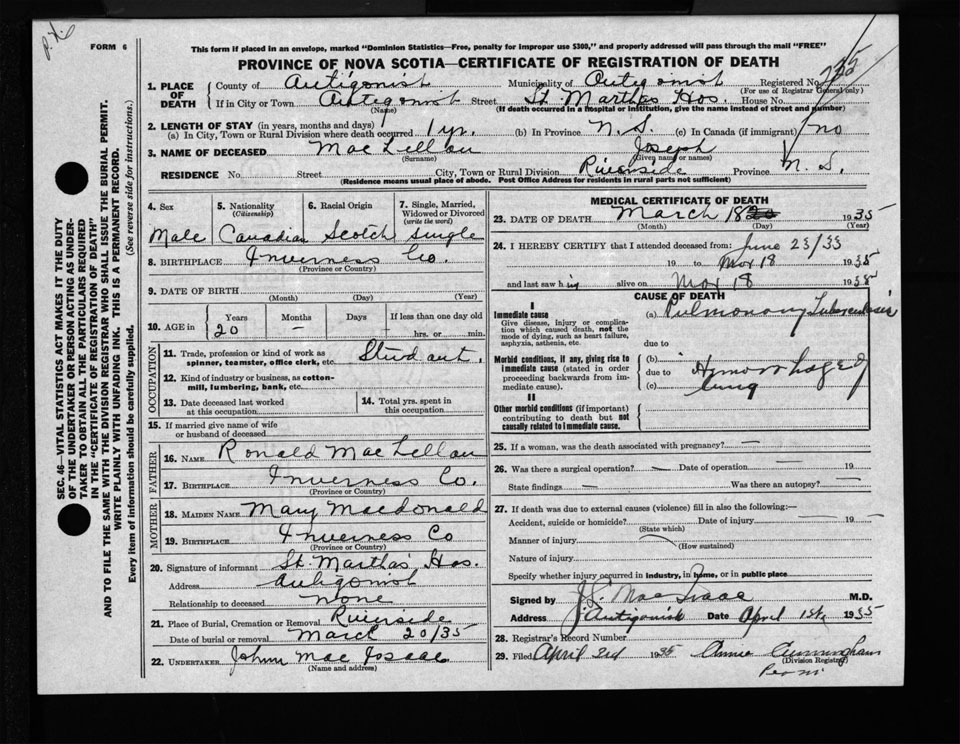 FORM 6
This form if placed in an envelope, marked "Dominion Statistics—Free, penalty for improper use $300," and properly addressed will pass through the mail "FREE"
PROVINCE OF NOVA SCOTIA—CERTIFICATE OF REGISTRATION OF DEATH
1. PLACE OF DEATH County of Antigonish Municipality of Antigonish Registered No.
(For use of Registrar General only)
If in City or Town Antigonish Street St. Marthas Hos. House No.
(Name) (If death occurred in a hospital or institution, give the name instead of street and number)
2. LENGTH OF STAY (in years, months and days)
(a) In City, Town or Rural Division where death occurred 1 yr. (b) In Province N. S. (c) In Canada (if immigrant) no
3. NAME OF DECEASED MacLellan Joseph
(Surname) (Given name or names)
RESIDENCE No. Street City, Town or Rural Division Riverside Province N. S.
(Residence means usual place of abode. Post Office Address for residents in rural parts not sufficient)
4. Sex 5. Nationality (Citizenship) 6. Racial Origin 7. Single, Married, Widowed or Divorced (write the word)
Male Canadian Scotch Single
8. BIRTHPLACE Inverness Co.
(Province or Country)
9. DATE OF BIRTH
(Month) (Day) (Year)
10. AGE in Years Months Days If less than one day old
20 — — hrs. or min.
OCCUPATION
11. Trade, profession or kind of work as spinner, teamster, office clerk, etc. Student.
12. Kind of industry or business, as cotton-mill, lumbering, bank, etc.
13. Date deceased last worked at this occupation 14. Total yrs. spent in this occupation
15. If married give name of wife or husband of deceased
FATHER
16. NAME Ronald MacLellan
17. BIRTHPLACE Inverness Co.
(Province or Country)
MOTHER
18. MAIDEN NAME Mary Macdonald
19. BIRTHPLACE Inverness Co
(Province or Country)
20. Signature of informant St. Martha's Hos.
Address Antigonish
Relationship to deceased none
21. Place of Burial, Cremation or Removal Riverside
Date of burial or removal March 20/35
22. UNDERTAKER John MacIsaac
(Name and address)
MEDICAL CERTIFICATE OF DEATH
23. DATE OF DEATH March 18 1935
(Month) (Day) (Year)
24. I HEREBY CERTIFY that I attended deceased from: June 23/33
19 to Mar 18 1935
and last saw him alive on Mar 18 1935
CAUSE OF DEATH
I
Immediate cause (a) Pulmonary Tuberculosis
Give disease, injury or complication which caused death, not the mode of dying, such as heart failure, asphyxia, asthenia, etc.
due to
Morbid conditions, if any, giving rise to immediate cause (stated in order proceeding backwards from immediate cause).
(b)
due to Hemorrhage of
(c) lung
II
Other morbid conditions (if important) contributing to death but not causally related to immediate cause.
25. If a woman, was the death associated with pregnancy? —
26. Was there a surgical operation? — Date of operation — 19
State findings — Was there an autopsy? —
27. If death was due to external causes (violence) fill in also the following:—
Accident, suicide or homicide? Date of injury 19
(State which)
Manner of injury
(How sustained)
Nature of injury
Specify whether injury occurred in industry, in home, or in public place
Signed by J. MacIsaac M.D.
Address Antigonish Date April 1st 1935
28. Registrar's Record Number
29. Filed April 2nd 1935 Annie Cunningham
(Division Registrar)
SEC. 46—VITAL STATISTICS ACT MAKES IT THE DUTY
OF THE UNDERTAKER OR PERSON ACTING AS UNDER-
TAKER TO OBTAIN ALL THE PARTICULARS REQUIRED
IN THE "CERTIFICATE OF REGISTRATION OF DEATH"
AND TO FILE THE SAME WITH THE DIVISION REGISTRAR WHO SHALL ISSUE THE BURIAL PERMIT.
WRITE PLAINLY WITH UNFADING INK. THIS IS A PERMANENT RECORD.
Every item of information should be carefully supplied. (See reverse side for instructions.)